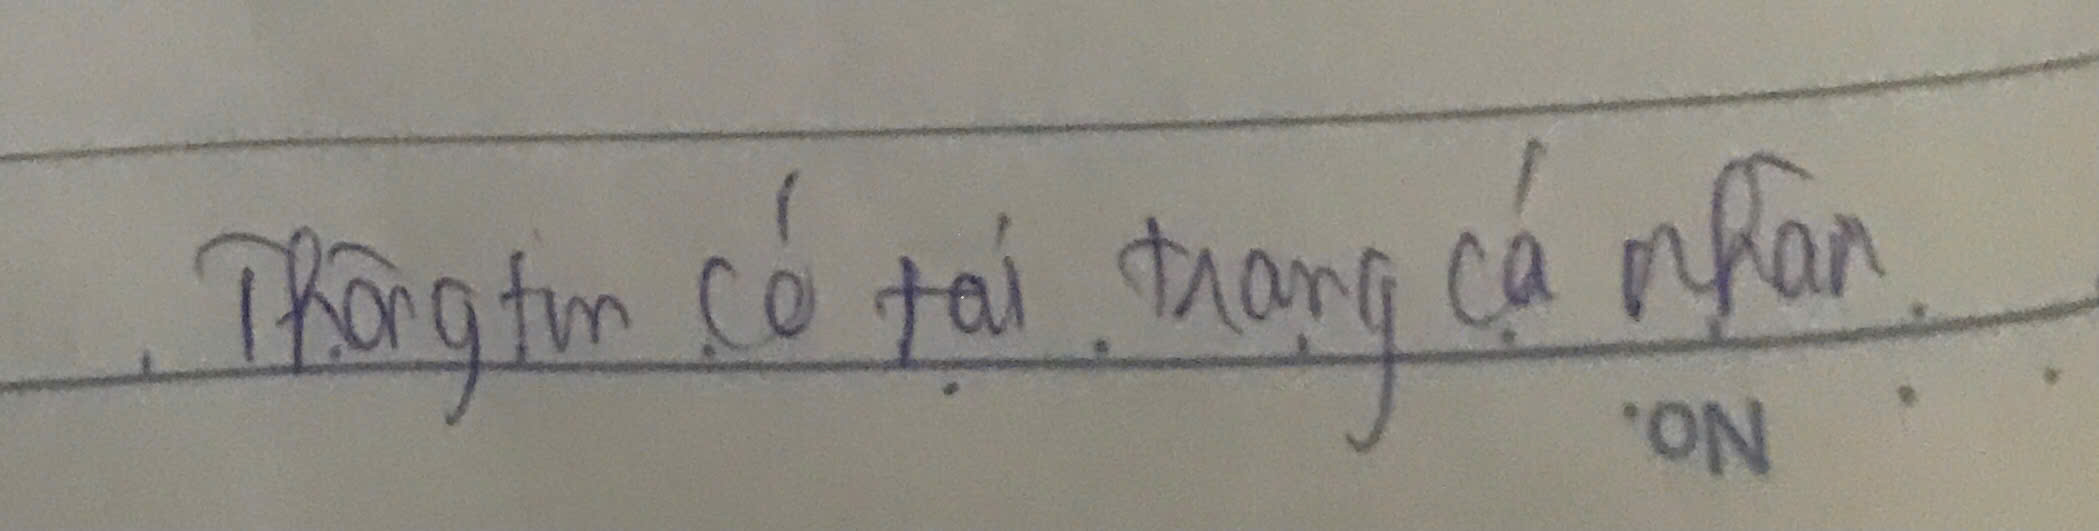 Thông tin có tại trang cá nhân.
NO.